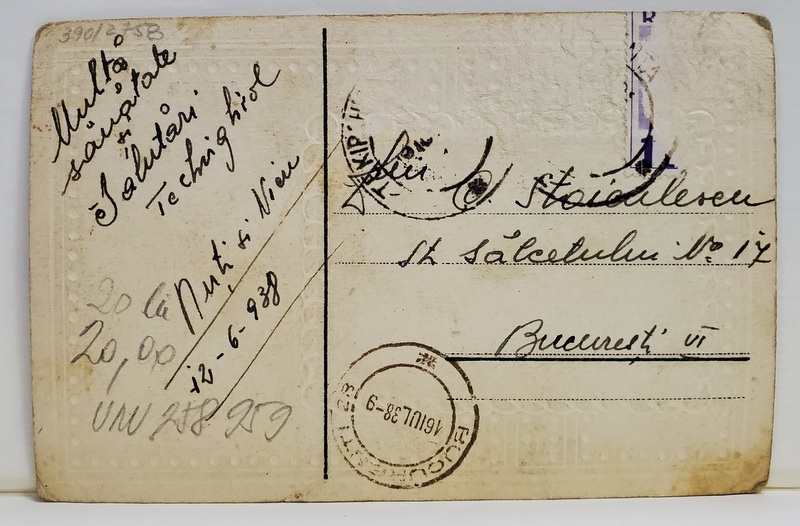 390/2758
Multă
sănătate
și
Salutări
Techirghiol
Nuți și
12-6-938
20 lei
20,00
UNU 258 959
C. Stoiculescu
st. Sălcetului No 17
București VI
BUCUREȘTI 23
16 IUL. 38-9